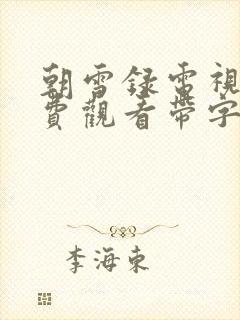 朝雪録電視
費觀看帶字
李海東